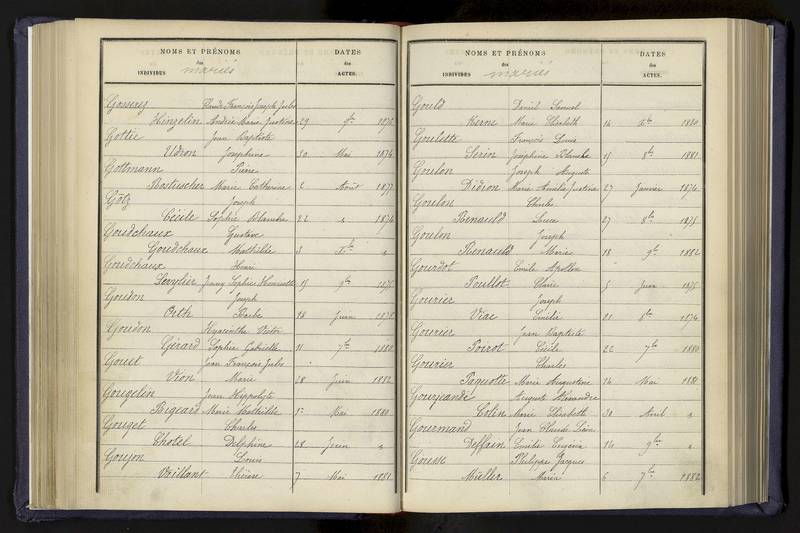 NOMS ET PRÉNOMS DATES
des des
INDIVIDUS mariés ACTES.
Gosserez Claude François Joseph Jules
Hinzelin Andrée Marie Justine 29 9bre 1876
Gottié Jean Baptiste
Udron Joséphine 30 Mai 1874
Gottmann Pierre
Bastuscher Marie Catherine 2 Août 1877
Götz Joseph
Cécile Sophie Blandre 22 " 1874
Goudchaux Gustave
Goudchaux Mathilde 3 "
Goudchaux Henri
Jenny Sophie Henriette 15 9bre 1875
Goudon Joseph
Orth Barbe 28 Juin 1878
Goudon Hyacinthe Victor
Gérard Sophie Gabrielle 11 7bre 1880
Gouet Jean François Jules
Vion Marie 28 Juin 1882
Gougelin Jean Hippolyte
Bigeard Marie Mathilde 1er Mai 1880
Gouget Charles
Thotel Delphine 28 Juin "
Goujon Louis
Vaillant Thérèse 7 Mai 1881
NOMS ET PRÉNOMS DATES
des des
INDIVIDUS mariés ACTES.
Gould Daniel Samuel
Kerne Marie Elisabeth 14 Xbre 1880
Goulette François Louis
Serin Joséphine Blanche 15 8bre 1881
Goulon Joseph Auguste
Didion Marie Amélie Justine 27 Janvier 1874
Goulon Charles
Renauld Laure 27 8bre 1875
Goulon Joseph
Renauld Marie 18 9bre 1882
Gourdot Emile Apollon
Pouillot Claire 5 Juin 1875
Gourier Joseph
Viac Emélie 21 8bre 1874
Gourier Jean Baptiste
Poirot Cécile 22 7bre 1880
Gourier Charles
Paquotte Marie Augustine 24 Mai 1881
Gourjeande Auguste Alexandre
Colin Marie Elisabeth 30 Avril "
Gourmand Jean Claude Léon
Deflain Emilie 14 9bre "
Gousse Philippe Jacques
Müeller Maria 6 7bre 1882